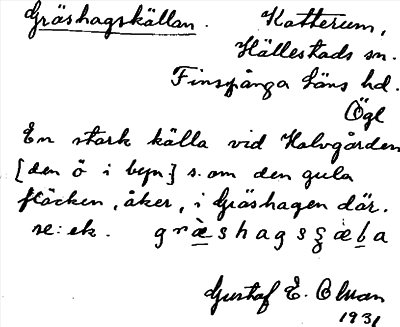 Gräshagskällan. Katterum,
Hällestads sn.
Finspånga läns hd.
Ögl
En stark källa vid Halvgården
[den ö i byn] s. om den gula
fläcken, åker, i Gräshagen där.
se: ek. græshagsʒæɓa
Gustaf E. Olman
1931